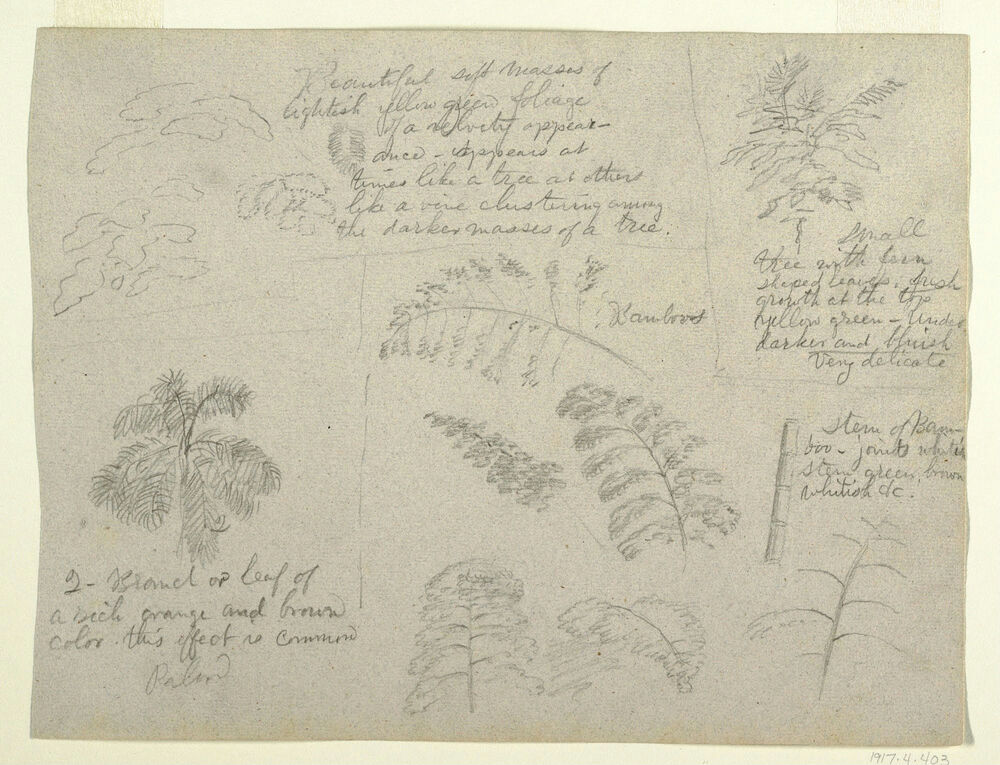 Beautiful soft masses of
lightish yellow green foliage
of a velvety appear-
ance - appears at
times like a tree at others
like a vine clustering among
the darker masses of a tree.
small
tree with fern
shaped leaves. fresh
growth at the top
yellow green - under
darker and bluish
very delicate
Bamboos
Stem of Bam-
boo - joints whitish
stem green, brown
whitish &c.
2- Branch or leaf of
a rich orange and brown
color. this effect is common
Palm
1917.4.403